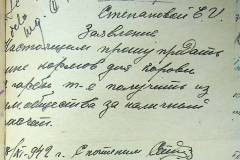 Степановой Е.И.
Заявление
Настоящим прошу продать
мне кормов для коровы
т-е получить из
общества за наличный
расчет.
/XI-1942 г. С почтением